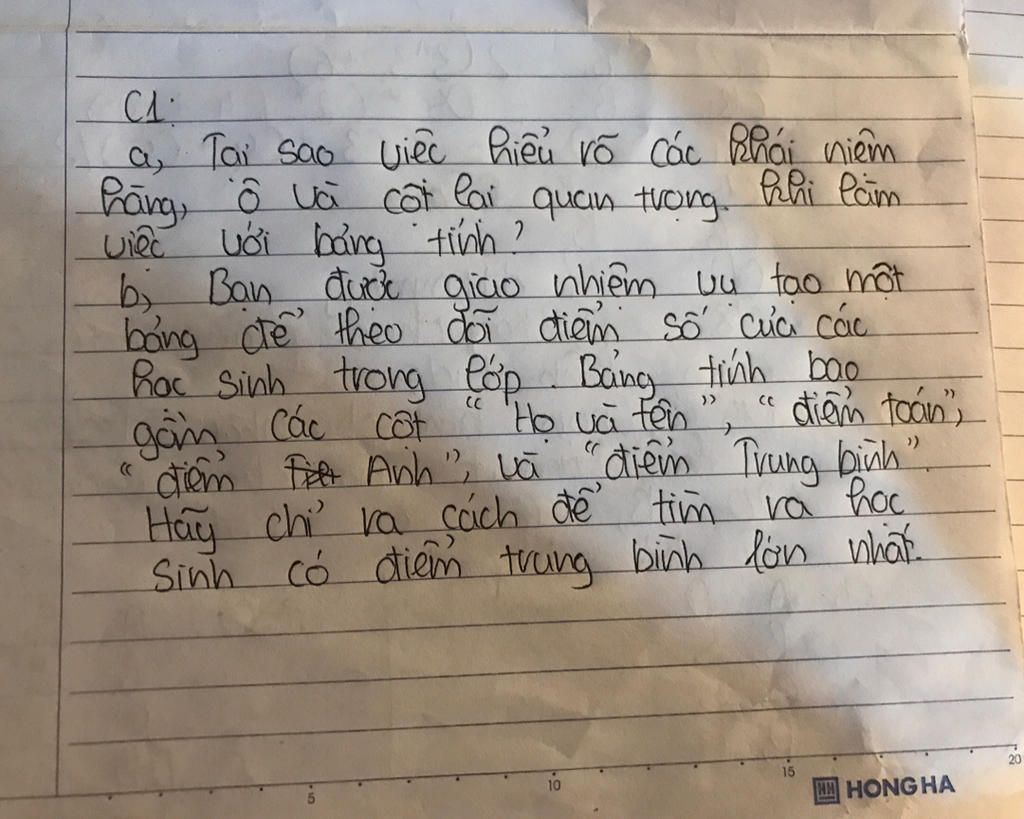 C1:
a, Tại sao việc hiểu rõ các khái niệm
hàng, ô và cột lại quan trọng. khi làm
việc với bảng tính?
b, Bạn được giao nhiệm vụ tạo một
bảng để theo dõi điểm số của các
học sinh trong lớp. Bảng tính bao
gồm các cột "Họ và tên", "điểm toán",
"điểm Anh", và "điểm Trung bình".
Hãy chỉ ra cách để tìm ra học
sinh có điểm trung bình lớn nhất.
5 10 15 20
HH HONG HA